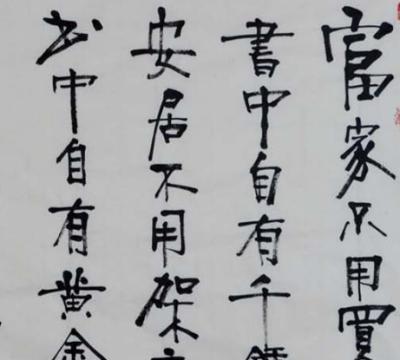 富家不用買
書中自有千鍾
安居不用架
书中自有黄金